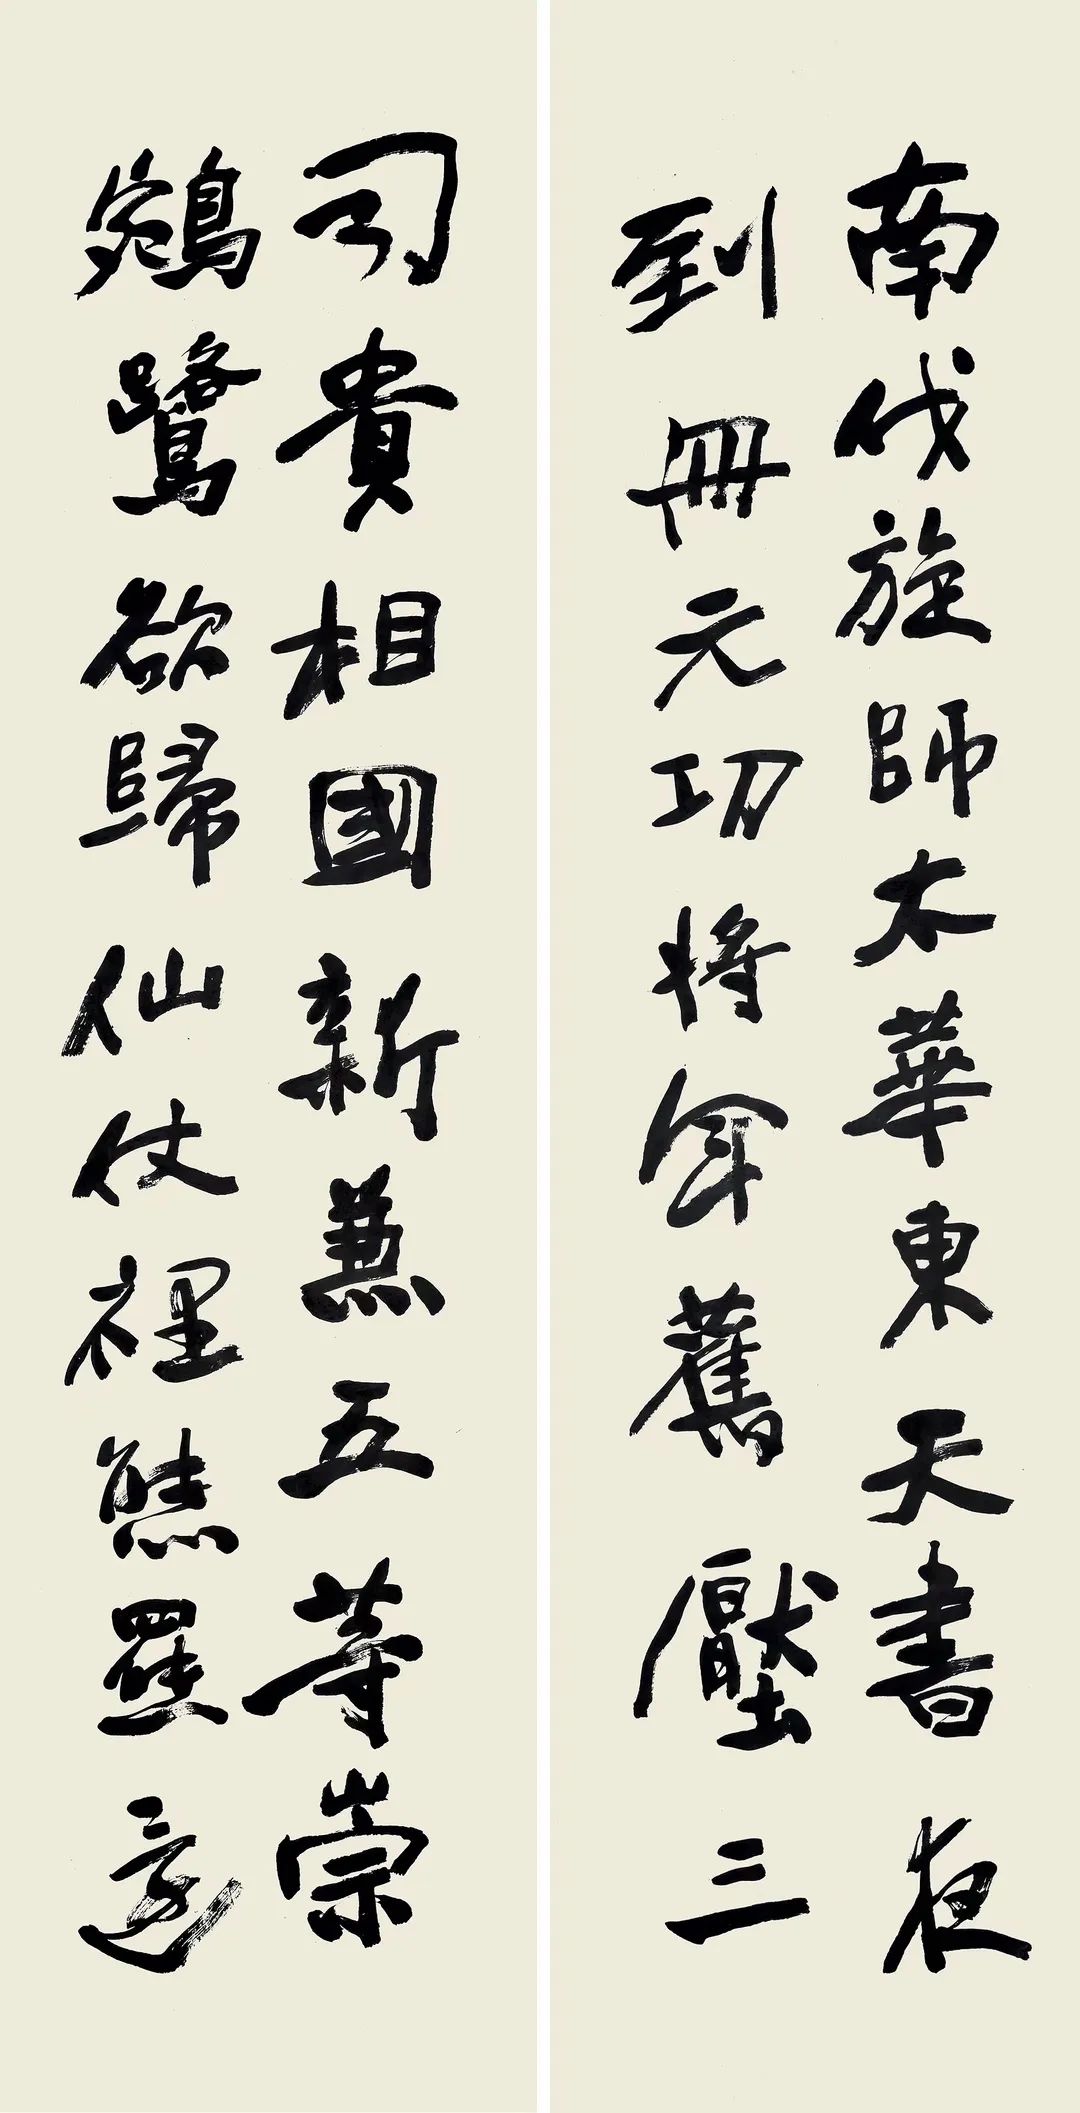 南伐旋師太華東天書夜
到冊元功將軍舊壓三
司貴相國新兼五等崇
鵷鷺欲歸仙仗裡熊羆還